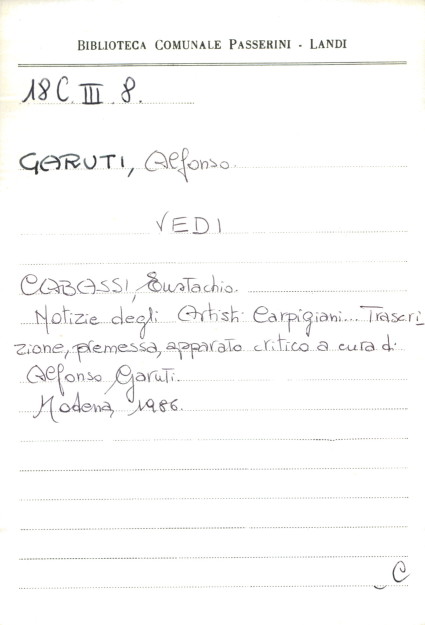 BIBLIOTECA COMUNALE PASSERINI - LANDI
18 C. III. 8.
GARUTI, Alfonso.
VEDI
CABASSI, Eustachio.
Notizie degli Artisti Carpigiani... Trascri
zione, premessa, apparato critico a cura di
Alfonso Garuti.
Modena, 1986.
C